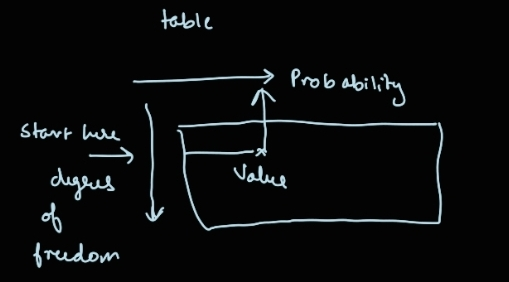 table
Probability
Start here
degrees
of
freedom
Value